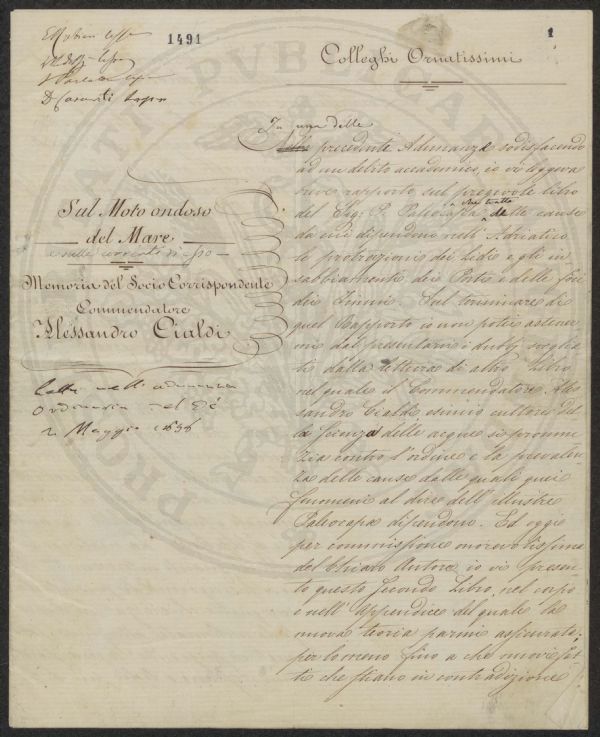 1491
1
Colleghi Ornatissimi
Sul Moto ondoso
del Mare
e sulle correnti di esso
Memoria del Socio Corrispondente
Commendatore
Alessandro Cialdi
Letta nell'adunanza
Ordinaria del dì
2 Maggio 1856
In una delle
precedenti Adunanze sodisfacendo
ad un debito accademico, io vi leggeva
breve rapporto sul pregevole libro
del Sig. P. Paleocapa delle cause
da cui dipendono nell'Adriatico
le protrazioni dei Lidi e gli in
sabbiamenti dei Porti e delle foci
dei fiumi. Sul terminare di
quel Rapporto io non potei astener
mi dal presentarvi i dubbj svoglia
ti dalla lettura di altro Libro
nel quale il Commendatore Ales
sandro Cialdi esimio cultore del
la scienza delle acque si pronun
zia contro l'ordine e la prevalen
za delle cause dalle quali quei
fenomeni al dire dell'illustre
Paleocapa dipendono. Ed oggi
per commissione onorevolissima
del Chiaro Autore io vi presen
to questo secondo Libro, nel corpo
e nell'Appendice del quale la
nuova teoria parmi assicurata,
per lo meno fino a che nuovi fat
ti che stiano in contradizione